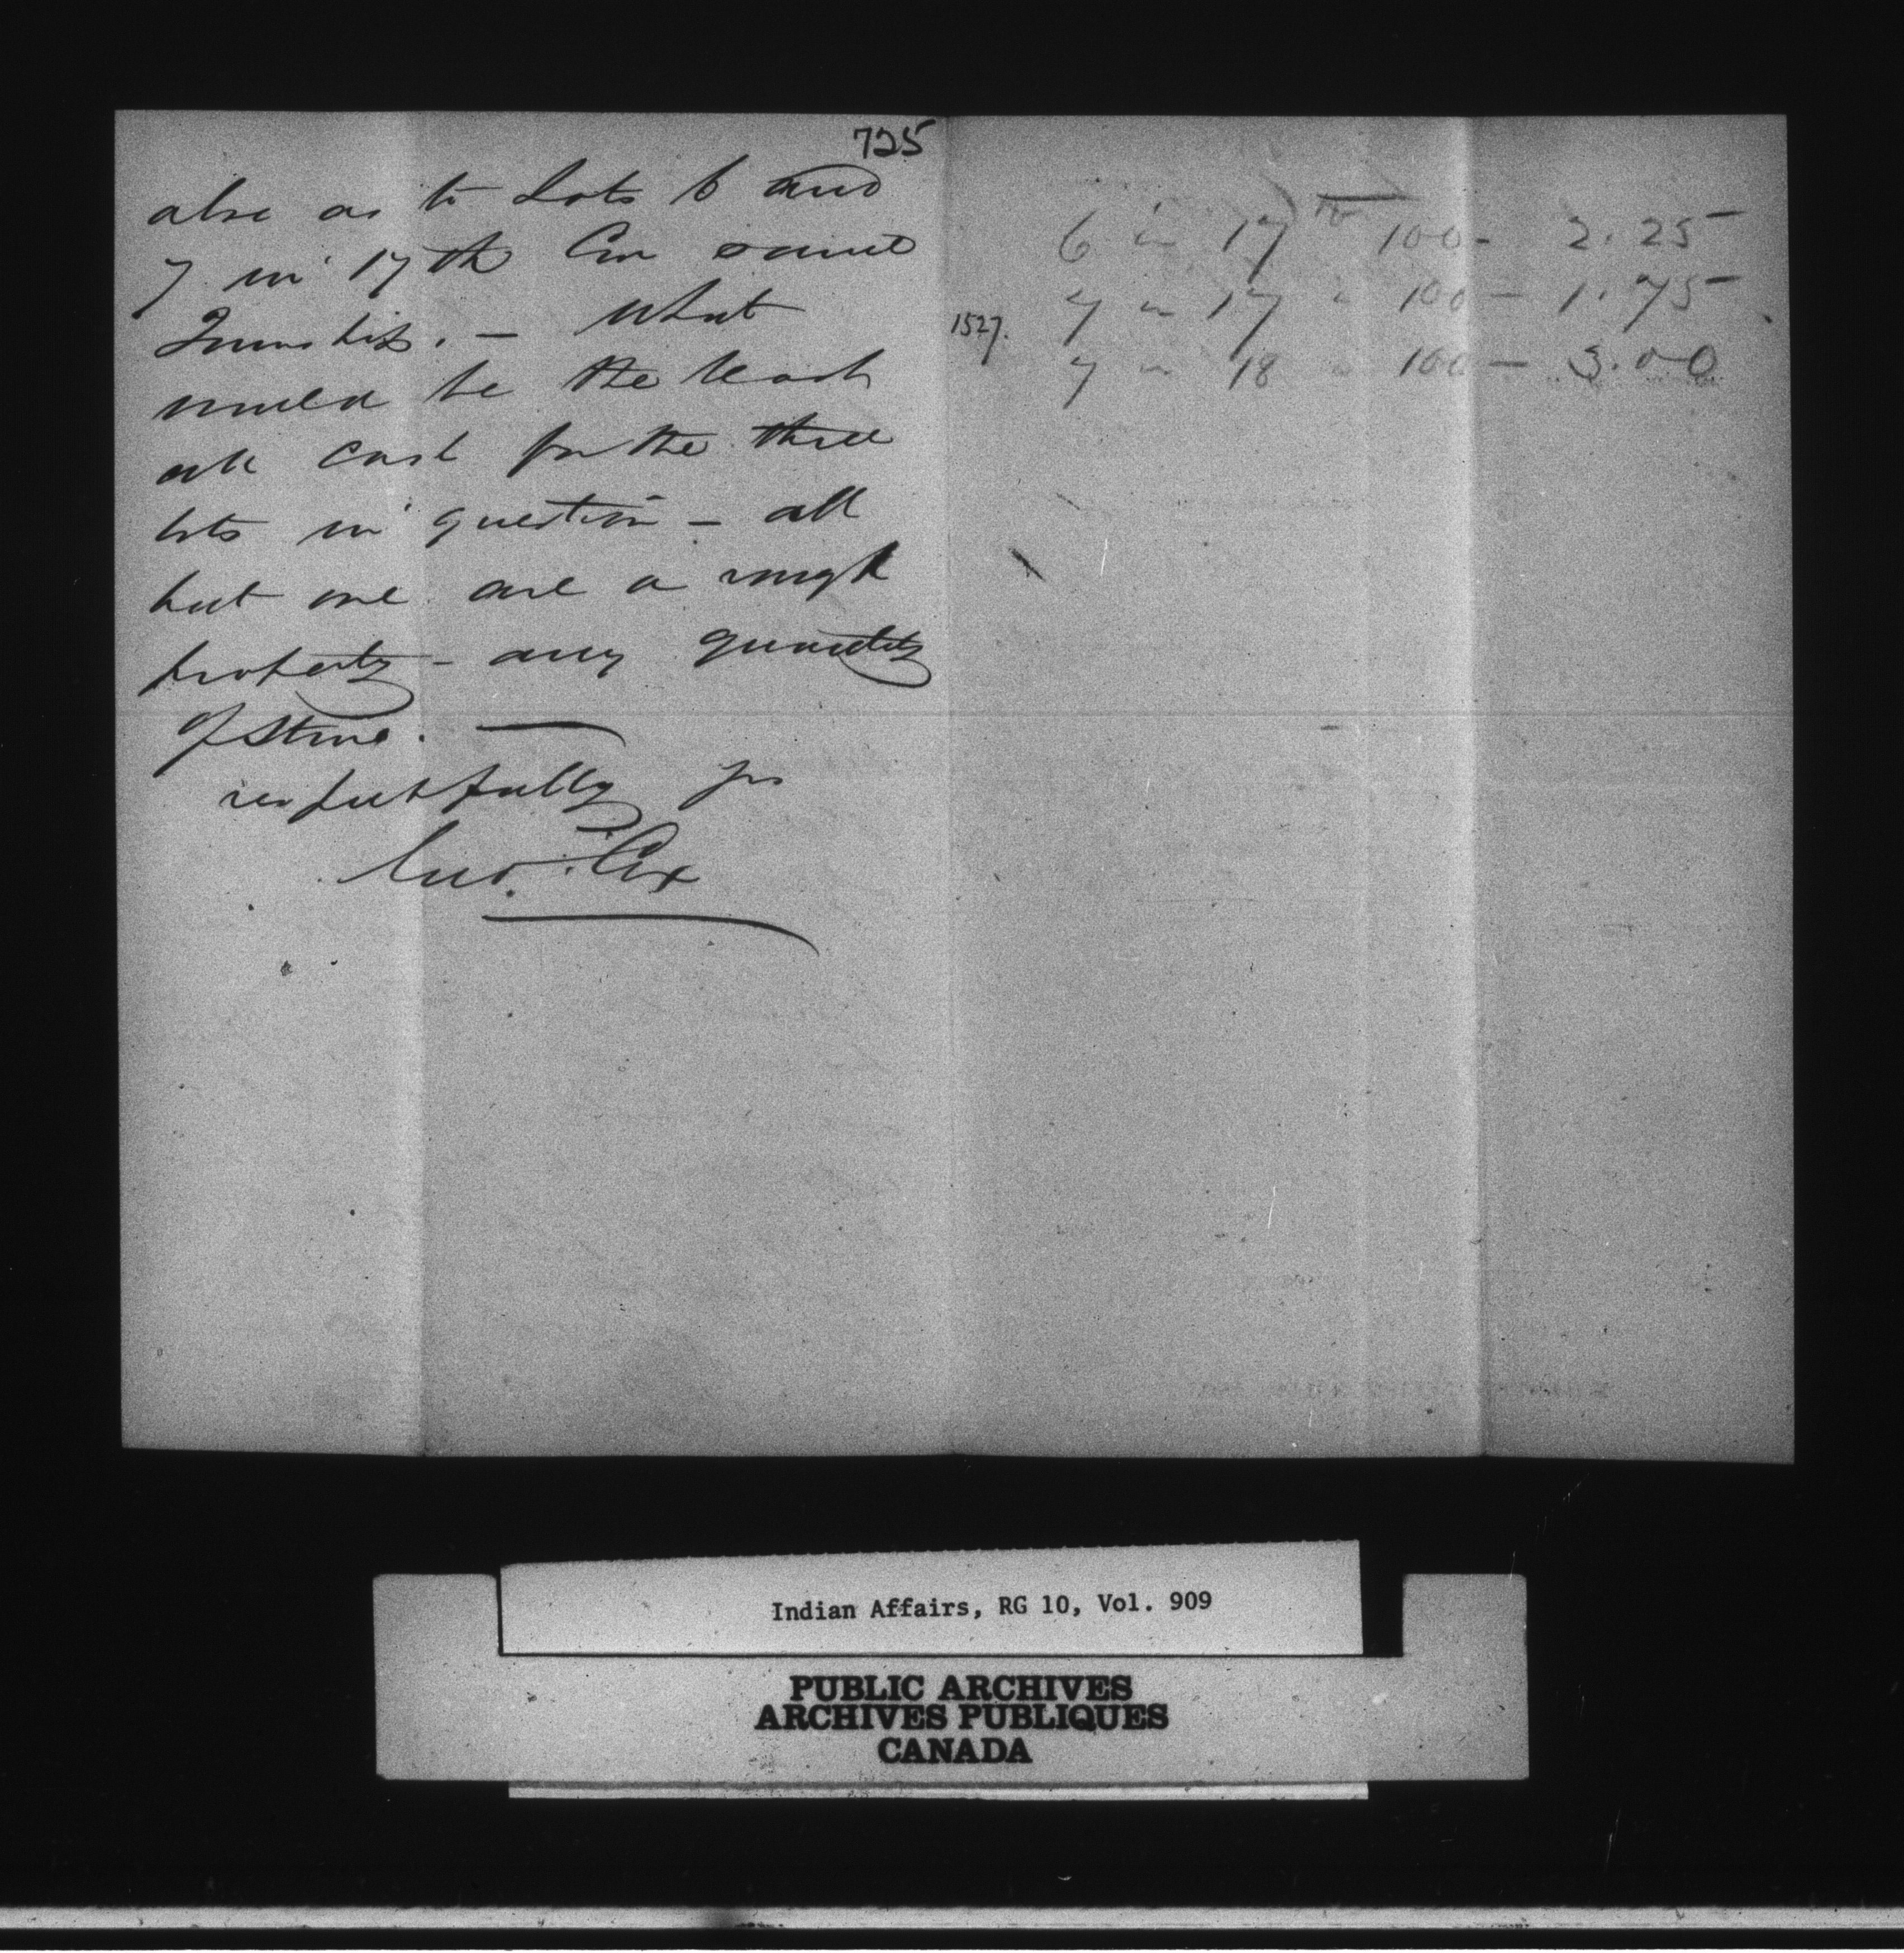 725
also as to Lots 6 and
7 in 17th Con same
Township. - What
would be the least
all cash for the three
lots in question - all
but one are a rough
property - any quantity
of stone. —
respectfully yrs
Jno. Cox
6 in 17 100 - 2.25
1527. 7 in 17 " 100 - 1.75
7 " 18 " 100 - 3.00
Indian Affairs, RG 10, Vol. 909
PUBLIC ARCHIVES
ARCHIVES PUBLIQUES
CANADA